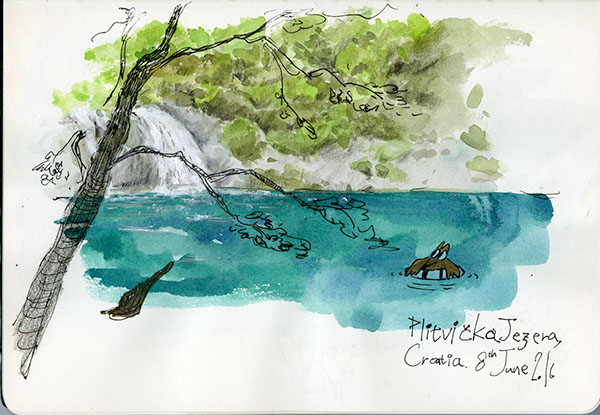 Plitvička Jezera,
Croatia. 8th June 2.16